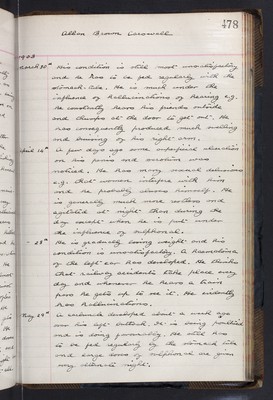 478
Allan Brown Carswell
1908
March 30th His condition is still most unsatisfactory
and he has to be fed regularly with the
stomach tube. He is much under the
influence of hallucinations of hearing e.g.
He constantly hears his friends outside
and thumps at the door to get out. He
has consequently produced much swelling
and bruising of his right arm.
April 14th A few days ago some superficial ulceration
on his penis and scrotum was
noticed. He has many insane delusions
e.g. that women interfere with him
and he probably abuses himself. He
is generally much more restless and
agitated at night than during the
day except when he is put under
the influence of sulphonal.
" 28th He is gradually losing weight and his
condition is unsatisfactory. A haematoma
of the left ear has developed. He thinks
that railway accidents take place every
day and whenever he hears a train
pass he gets up to see it. He evidently
has hallucinations.
May 29th A carbuncle developed about a week ago
over his left buttock. It is being poulticed
and is doing favourably. He still has
to be fed regularly by the stomach tube
and large doses of sulphonal are given
every alternate night.